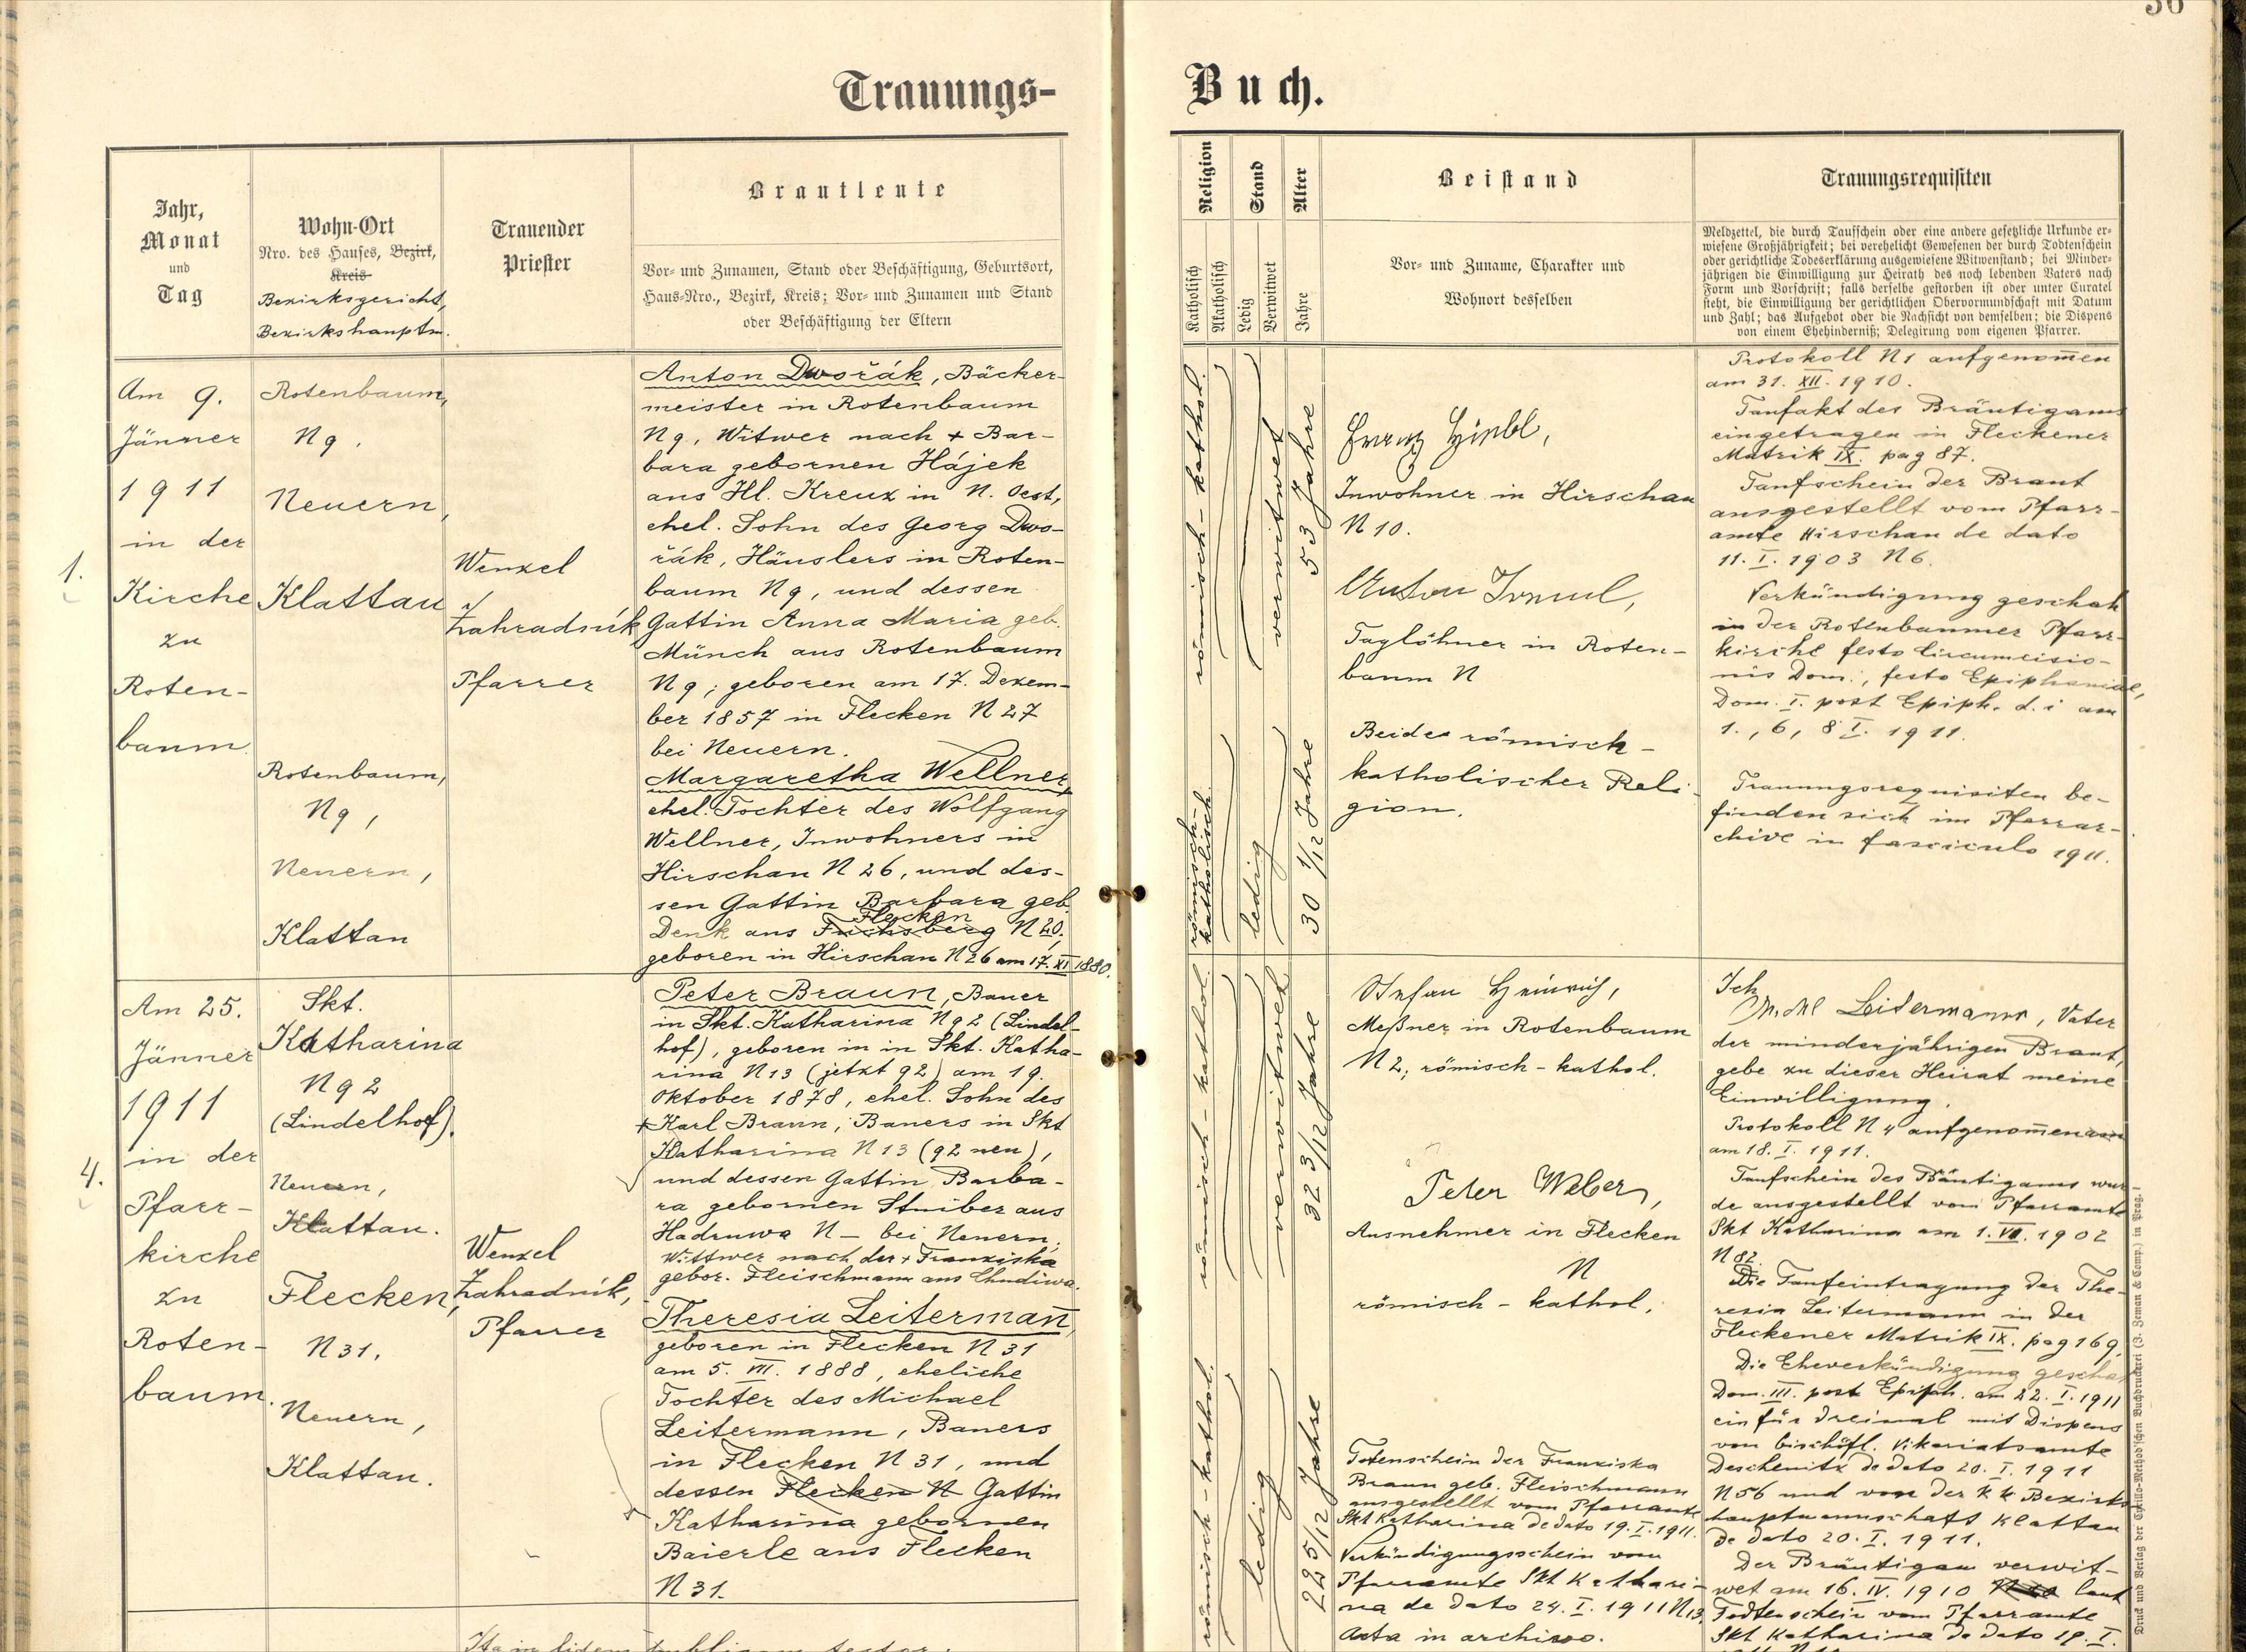 Trauungs-
Jahr,
Monat
und
Tag
Wohn-Ort
Nro. des Hauses, Bezirk,
Kreis
Bezirksgericht,
Bezirkshauptm.
Trauender
Priester
Brautleute
Vor- und Zunamen, Stand oder Beschäftigung, Geburtsort,
Haus-Nro., Bezirk, Kreis; Vor- und Zunamen und Stand
oder Beschäftigung der Eltern
1.
Am 9.
Jänner
1911
in der
Kirche
zu
Roten-
baum
Rotenbaum,
N 9.
Neuern,
Klattau
Rotenbaum,
N 9,
Neuern,
Klattau
Wenzel
Zahradník
Pfarrer
Anton Dwořák, Bäcker-
meister in Rotenbaum
N 9, Witwer nach + Bar-
bara gebornen Hájek
aus Hl. Kreuz in N. Oest,
ehel. Sohn des Georg Dwo-
řák, Häuslers in Roten-
baum N 9, und dessen
Gattin Anna Maria geb.
Münch aus Rotenbaum
N 9; geboren am 17. Dezem-
ber 1857 in Flecken N 27
bei Neuern.
Margaretha Wellner,
ehel. Tochter des Wolfgang
Wellner, Inwohners in
Hirschau N 26, und des-
sen Gattin Barbara geb.
Flecken
Denk aus Fuchsberg N 20,
geboren in Hirschau N 26 am 17. XI 1880.
4.
Am 25.
Jänner
1911
in der
Pfarr-
kirche
zu
Roten-
baum.
Skt.
Katharina
N 92
(Lindelhof).
Neuern,
Klattau.
Flecken,
N 31.
Neuern,
Klattau.
Wenzel
Zahradník,
Pfarrer
Peter Braun, Bauer
in Skt. Katharina N 92 (Lindel-
hof), geboren in in Skt. Katha-
rina N 13 (jetzt 92) am 19.
Oktober 1878, ehel. Sohn des
+ Karl Braun, Bauers in Skt
Katharina N 13 (92 neu),
und dessen Gattin Barba-
ra gebornen Stuiber aus
Hadruwa N — bei Neuern;
Wittwer nach der + Franziska
gebor. Fleischmann aus Chudiwa.
Theresia Leitermañ,
geboren in Flecken N 31
am 5. VIII. 1888, eheliche
Tochter des Michael
Leitermann, Bauers
in Flecken N 31, und
dessen Flecken N Gattin
Katharina gebornen
Baierle aus Flecken
N 31.
Ita in fidem publicam testor:
Buch.
Religion
Katholisch
Akatholisch
Stand
Ledig
Verwitwet
Alter
Jahre
Beistand
Vor- und Zuname, Charakter und
Wohnort desselben
Trauungsrequisiten
Meldzettel, die durch Taufschein oder eine andere gesetzliche Urkunde er-
wiesene Großjährigkeit; bei verehelicht Gewesenen der durch Todtenschein
oder gerichtliche Todeserklärung ausgewiesene Witwenstand; bei Minder-
jährigen die Einwilligung zur Heirath des noch lebenden Vaters nach
Form und Vorschrift; falls derselbe gestorben ist oder unter Curatel
steht, die Einwilligung der gerichtlichen Obervormundschaft mit Datum
und Zahl; das Aufgebot oder die Nachsicht von demselben; die Dispens
von einem Ehehinderniß; Delegirung vom eigenen Pfarrer.
römisch-kathol.
verwitwet
53 Jahre
römisch-
katholisch.
ledig
30 1/12 Jahre
Franz
Inwohner in Hirschau
N 10.
Anton
Taglöhner in Roten-
baum N
Beide römisch-
katholischer Reli-
gion.
Protokoll N 1 aufgenom̄en
am 31. XII. 1910.
Taufakt des Bräutigams
eingetragen in Fleckener
Matrik IX. pag 87.
Taufschein der Braut
ausgestellt vom Pfarr-
amte Hirschau de dato
11. I. 1903 N 6.
Verkündigung geschah
in der Rotenbaumer Pfarr-
kirche festo Circumcisio-
nis Dom., festo Epiphaniae,
Dom. I. post Epiph. d. i am
1., 6, 8 I. 1911.
Trauungsrequisiten be-
finden sich im Pfarrar-
chive in fasciculo 1911.
römisch-kathol.
verwitwet
32 3/12 Jahre
römisch-kathol.
ledig
22 5/12 Jahre
Stefan Heinrich,
Meßner in Rotenbaum
N 2; römisch-kathol.
Peter Weber,
Ausnehmer in Flecken
N
römisch-kathol.
Totenschein der Franziska
Braun geb. Fleischmann
ausgestellt vom Pfarramte
Skt Katharina de dato 19. I. 1911.
Verkündigungsschein vom
Pfarramte Skt Kathari-
na de dato 24. I. 1911 N 13.
Acta in archivo.
Ich
Leitermann, Vater
der minderjährigen Braut,
gebe zu dieser Heirat meine
Einwilligung.
Protokoll N 4 aufgenom̄en am
am 18. I. 1911.
Taufschein des Bäutigams wur-
de ausgestellt vom Pfarramte
Skt Katharina am 1. VII. 1902
N 82.
Die Taufeintragung der The-
resia Leitermann in der
Fleckener Matrik IX. pag 169.
Die Eheverkündigung geschah
Dom. III. post Epiph. am 22. I. 1911
ein für dreimal mit Dispens
von bischöfl. Vikariatsamte
Deschenitz de dato 20. I. 1911
N 56 und von der k k Bezirks-
hauptmannschaft Klattau
de dato 20. I. 1911.
Der Bräutigam verwit-
wet am 16. IV. 1910 laut
Todtenschein vom Pfarramte
Skt Katharina de dato 19. I.
Druck und Verlag der Cyrillo-Method'schen Buchdruckerei (J. Zeman & Comp.) in Prag.